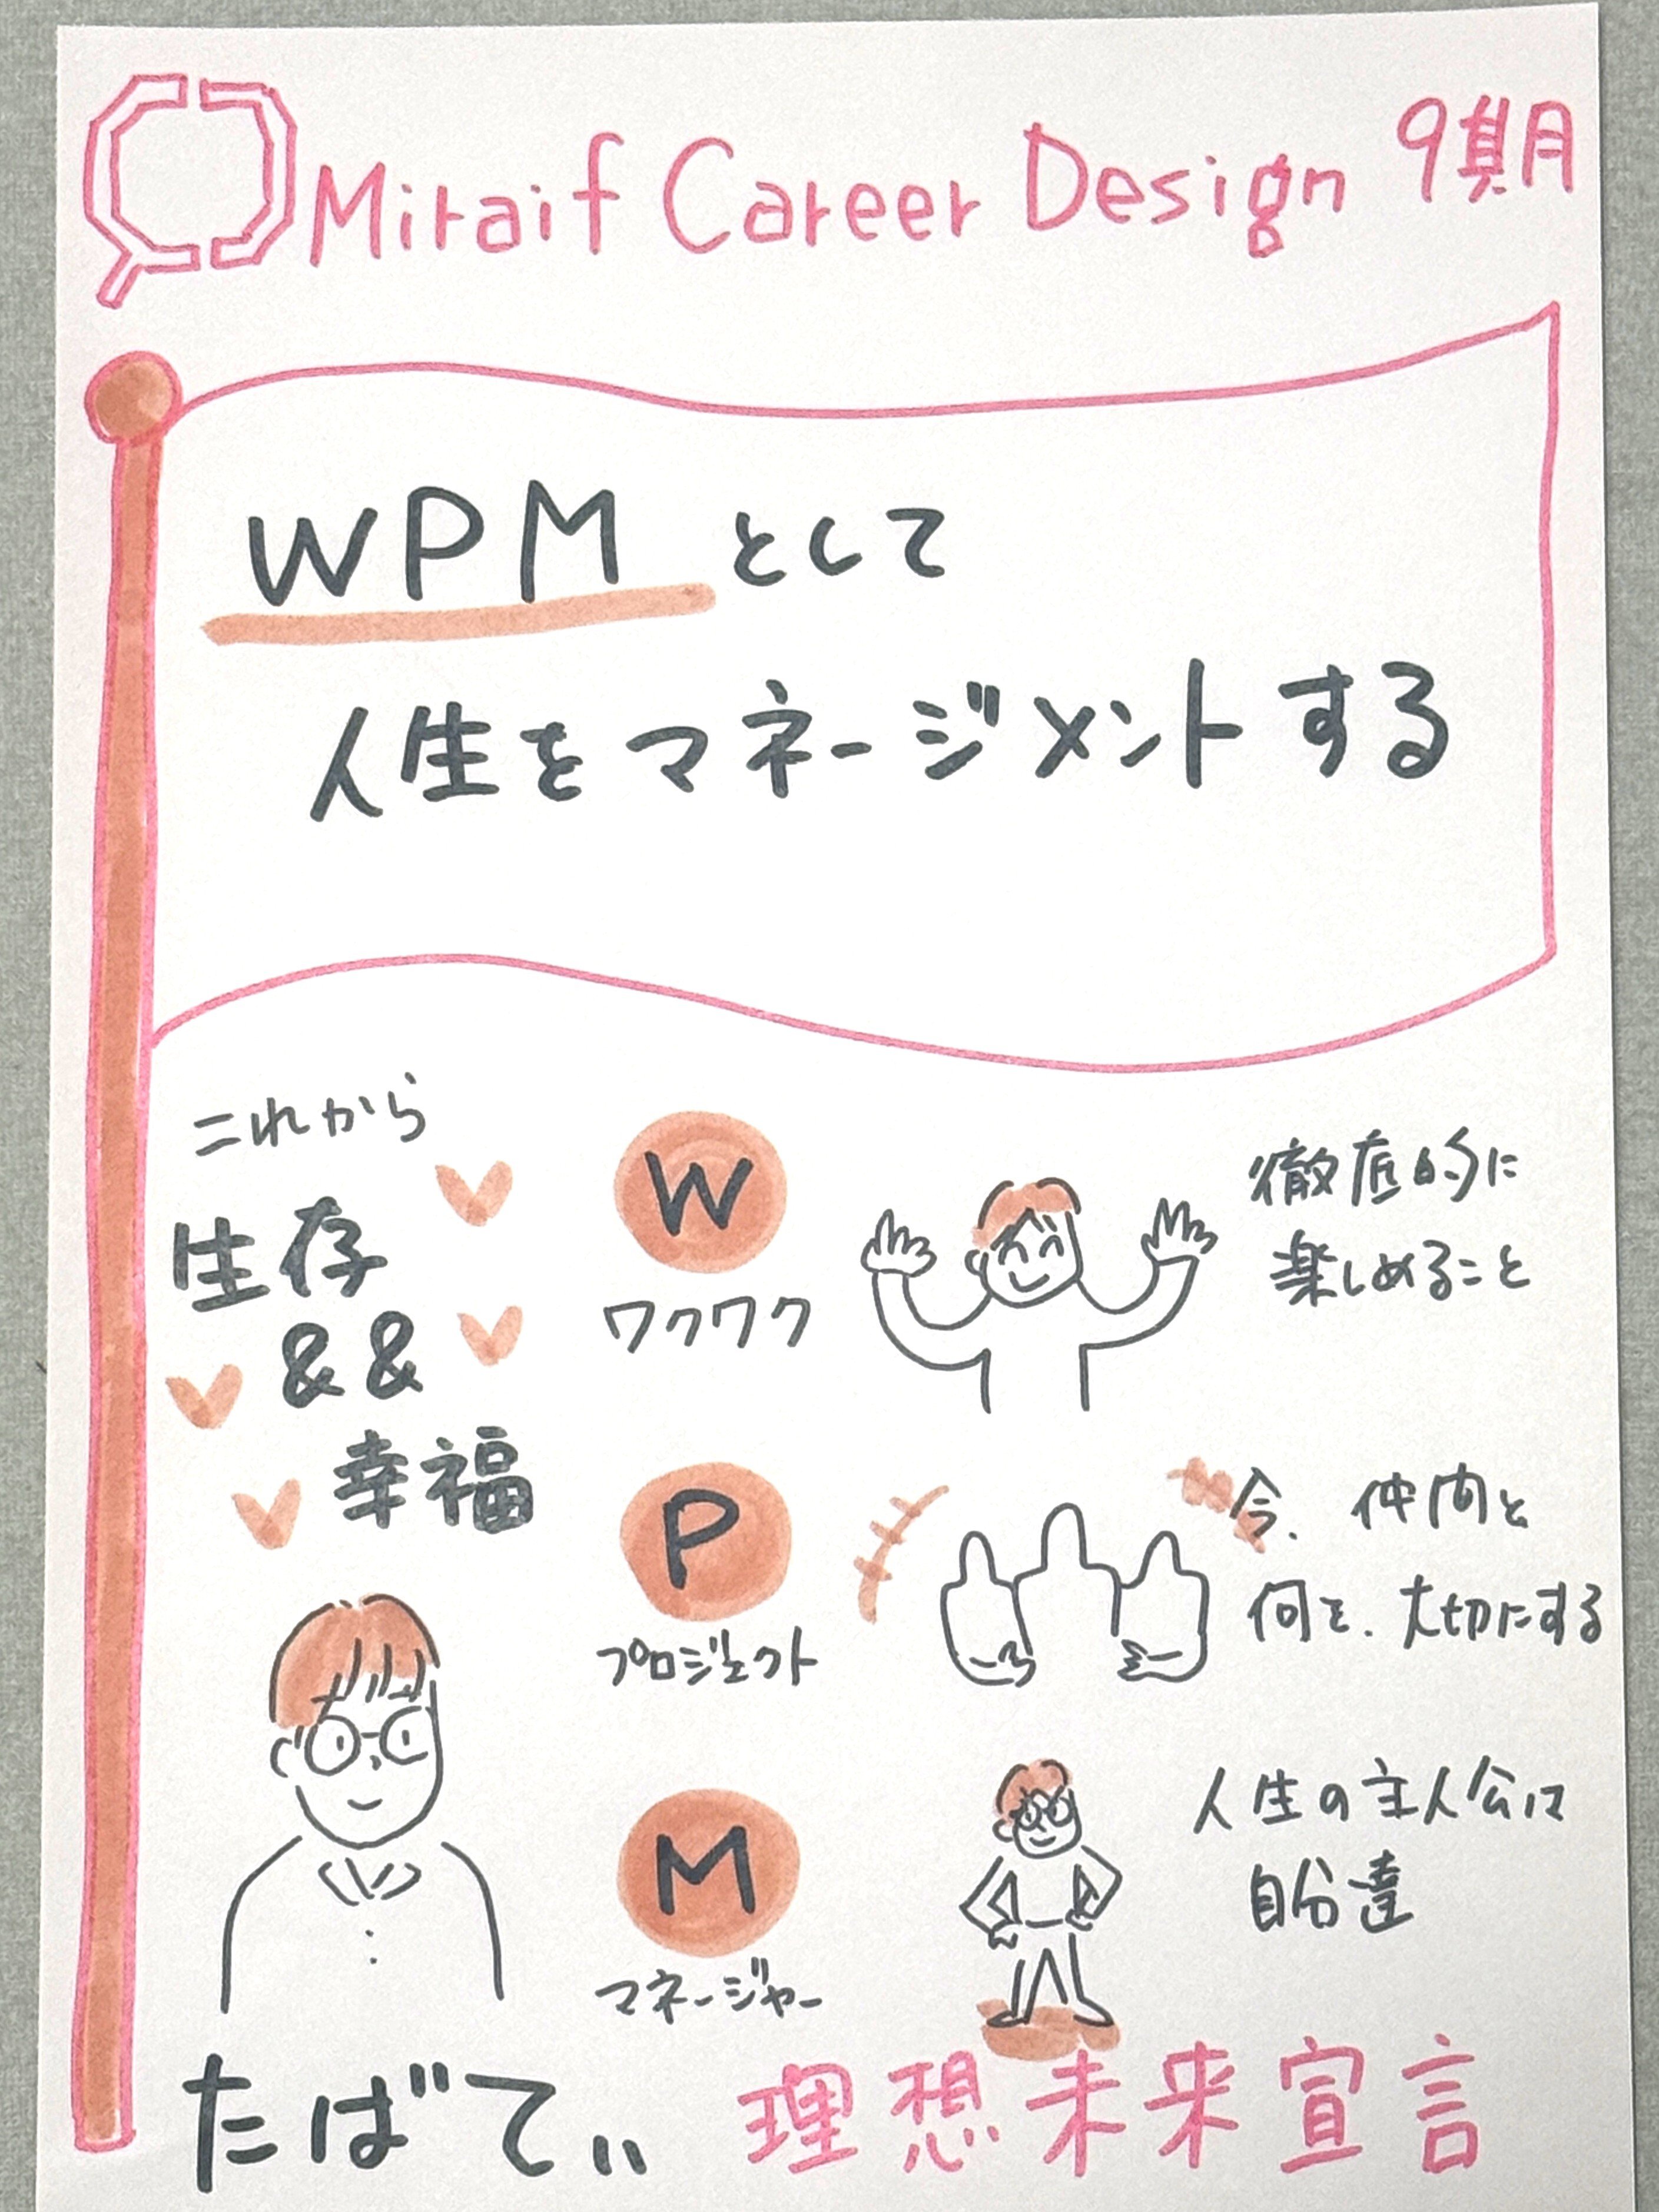 Miraif Career Design 9期
WPM として
人生をマネージメントする
これから
生存
&&
幸福
W
ワクワク
徹底的に
楽しめること
P
プロジェクト
今、仲間と
何を、大切にする
M
マネージャー
人生の主人公は
自分達
たばてぃ 理想未来宣言